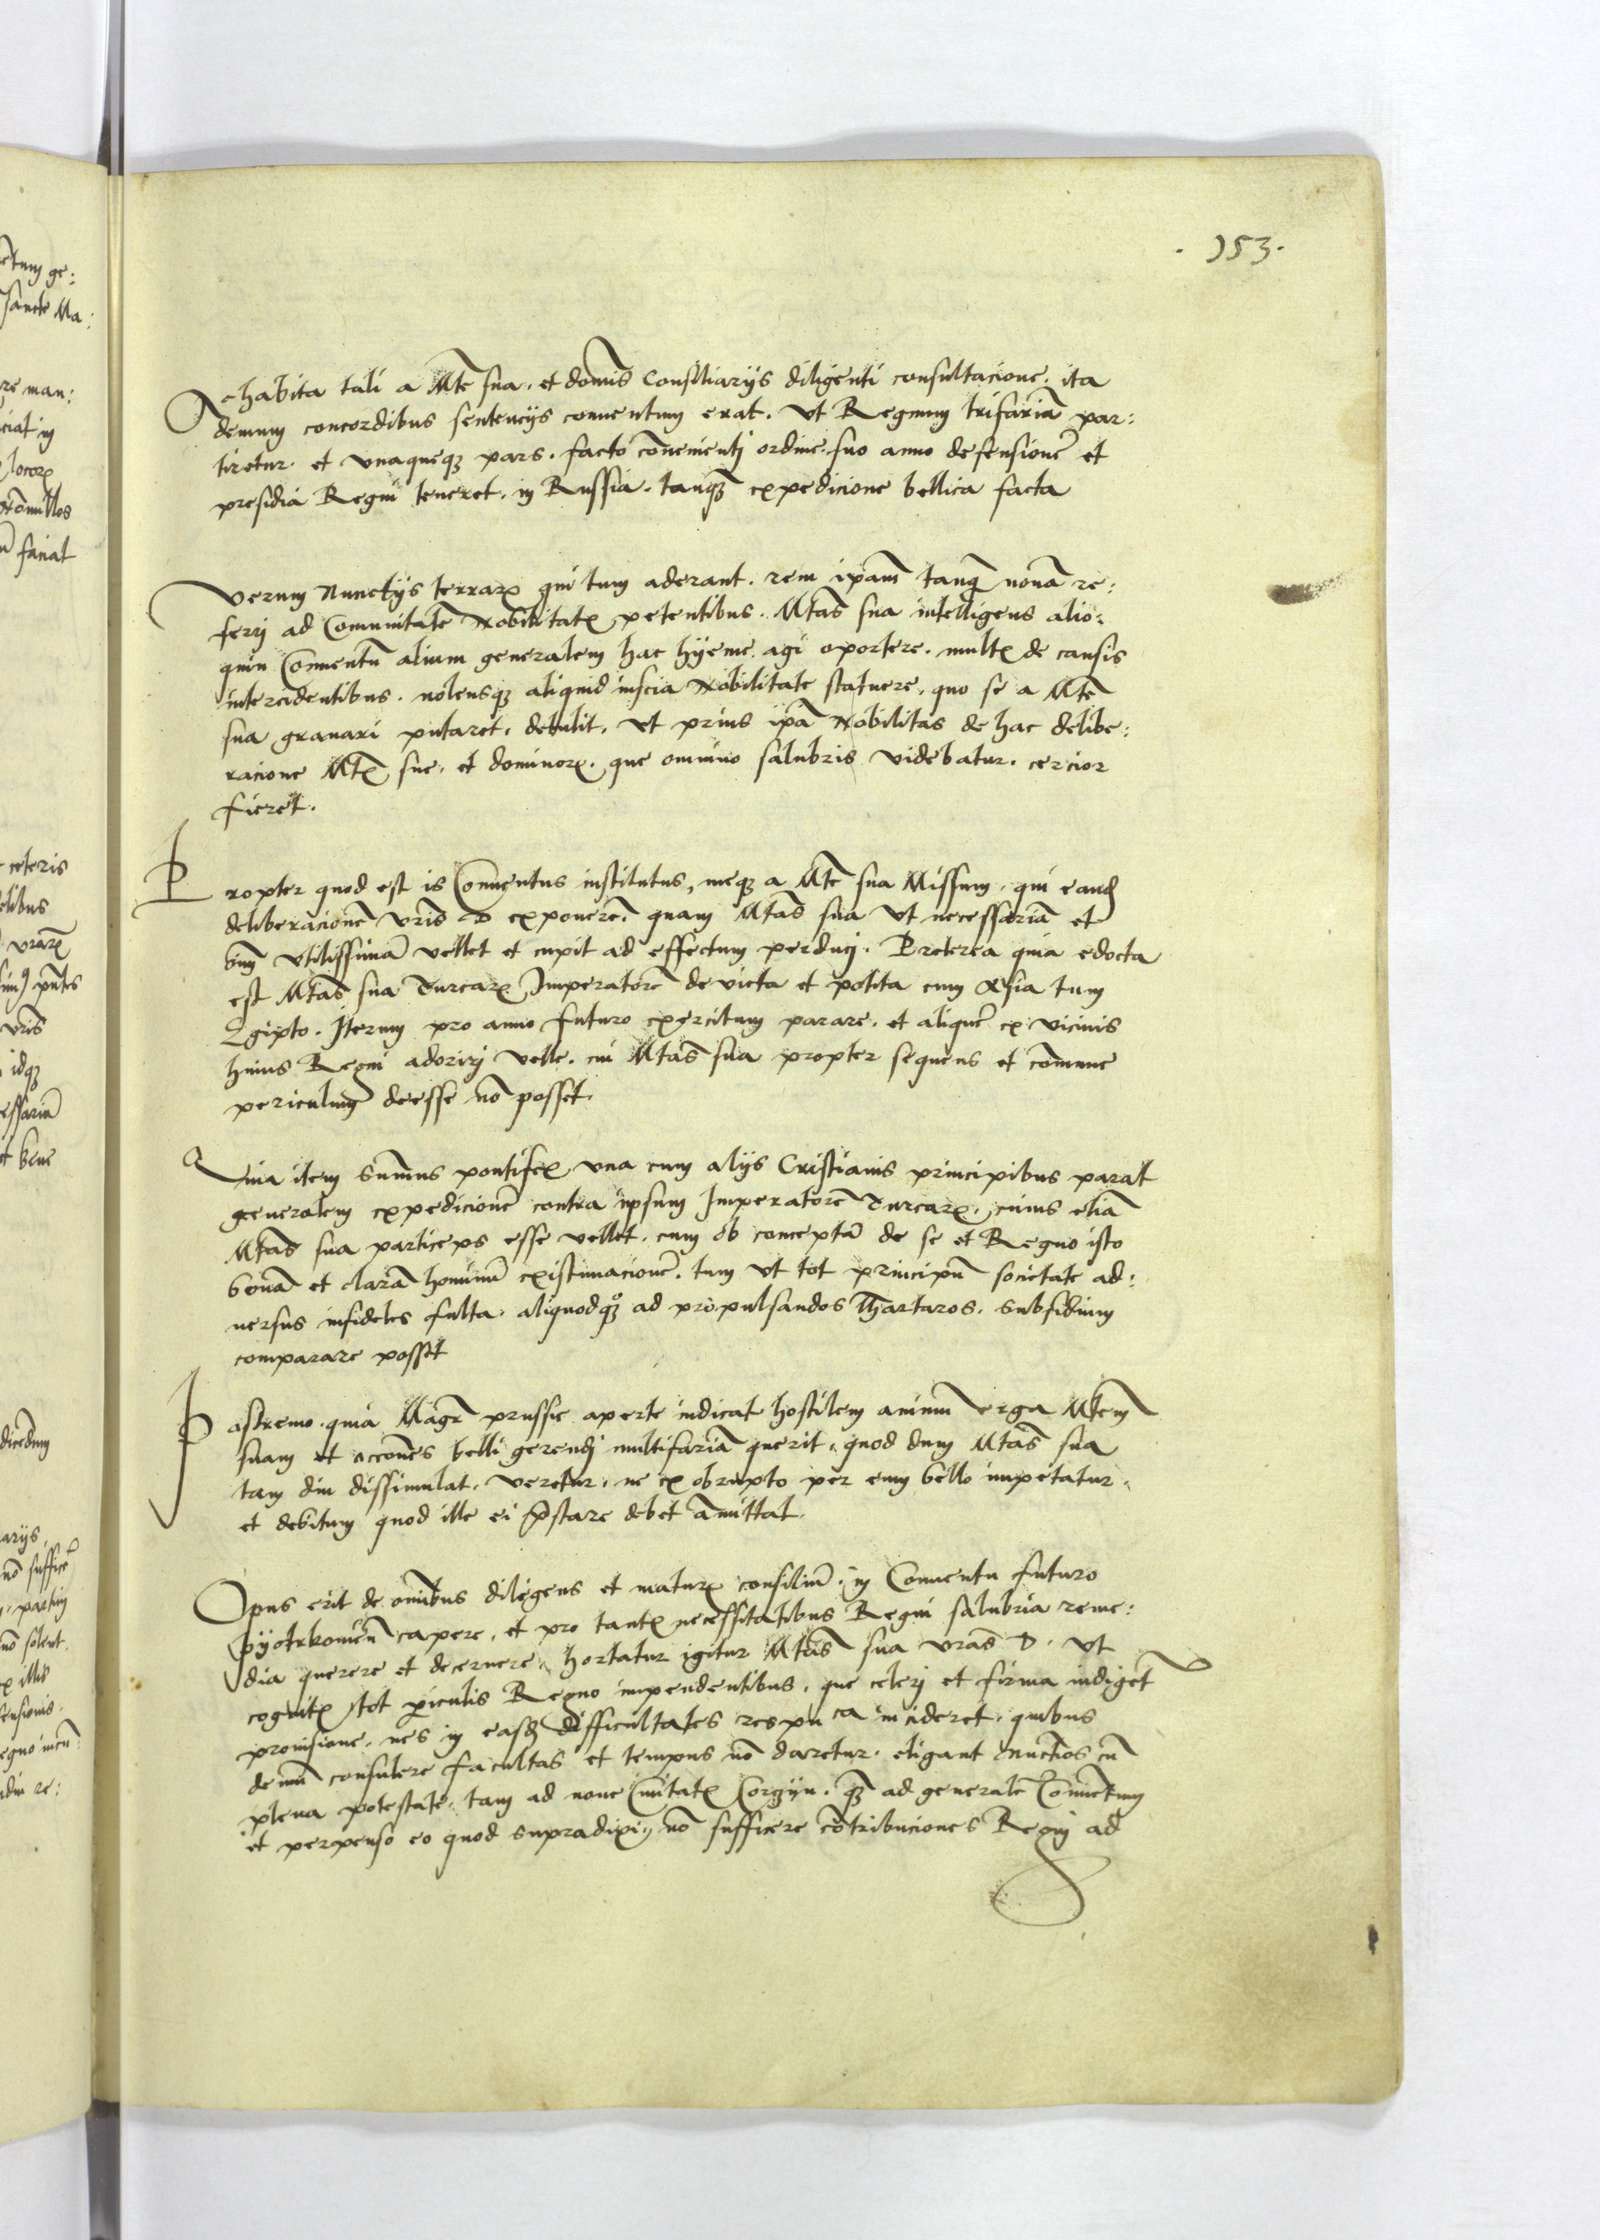 · 153 ·
Ac habita tali a Mte sua, et domis Consiliarijs diligenti consultacione, ita
demum concordibus sentencijs conuentum erat, vt Regnum trifaria par:
tiretur, et vnaqueq3 pars, facto conuenienti ordine, suo anno defensione et
presidia Regni teneret, in Russia, tanq3 expedicione bellica facta
Verum Nunctijs terrar qui tum aderant, rem ipam tanq noua re:
ferri ad Comunitate Nobilitat petentibus, Mtas sua intelligens alio:
quin Conuentu alium generalem hac hyeme agi oportere, mult de causis
intercidentibus, nolensq3 aliquid inscia Nobilitate statuere, quo se a Mte
sua grauari putaret, detulit, vt prius ipa Nobilitas de hac delibe:
racione Mt sue, et dominor, que omnino salubris videbatur, cercior
fieret.
Propter quod est is Conuentus institutus, meq3 a Mte sua Missum, qui eand
deliberacione vris D exponere, quam Mtas sua vt necessaria et
vtilissima vellet et cupit ad effectum perduci. Preterea quia edocta
est Mtas sua Turcar Imperatore deuicta et potita cum Asia tum
Egipto. Iterum pro anno futuro exercitum parare, et alique ex vicinis
huius Regni adoriri velle, cui Mtas sua propter sequens et comune
periculum deesse no posset.
Quia item Sumus pontifex vna cum alijs Cristianis principibus parat
generalem expedicione contra ipsum Imperatore Turcar, cuius etia
Mtas sua particeps esse vellet, cum ob concepta de se et Regno isto
bona et clara hominu existimacione, tum vt tot principu societate ad:
uersus infideles fulta, aliquodq3 ad propulsandos Thartaros, subsidium
comparare posset
Postremo, quia Magr prussie aperte indicat hostilem animu erga Mtem
suam et accones belli gerendi multifaria querit, quod dum Mtas sua
tam diu dissimulat, veretur, ne ex obrupto per eum bello impetatur,
et debitum quod ille ei pstare debet amittat.
Opus erit de omibus diligens et matur consiliu, in Conuentu futuro
pyotrkouien capere, et pro tant necessitatibus Regni salubria reme:
dia querere et decernere, hortatur igitur Mtas sua vras D. vt
cognit tot piculis Regno impendentibus, que celeri et firma indiget
prouisione, nes in easd difficultates respu ca incideret, quibus
demu consulere facultas et tempus no daretur, eligant Nunctios cu
plena potestate, tam ad noue Ciuitat Corczyn, q3 ad generale Conuentum
et perpenso eo quod supradixi, no sufficere cotribuciones Regni ad